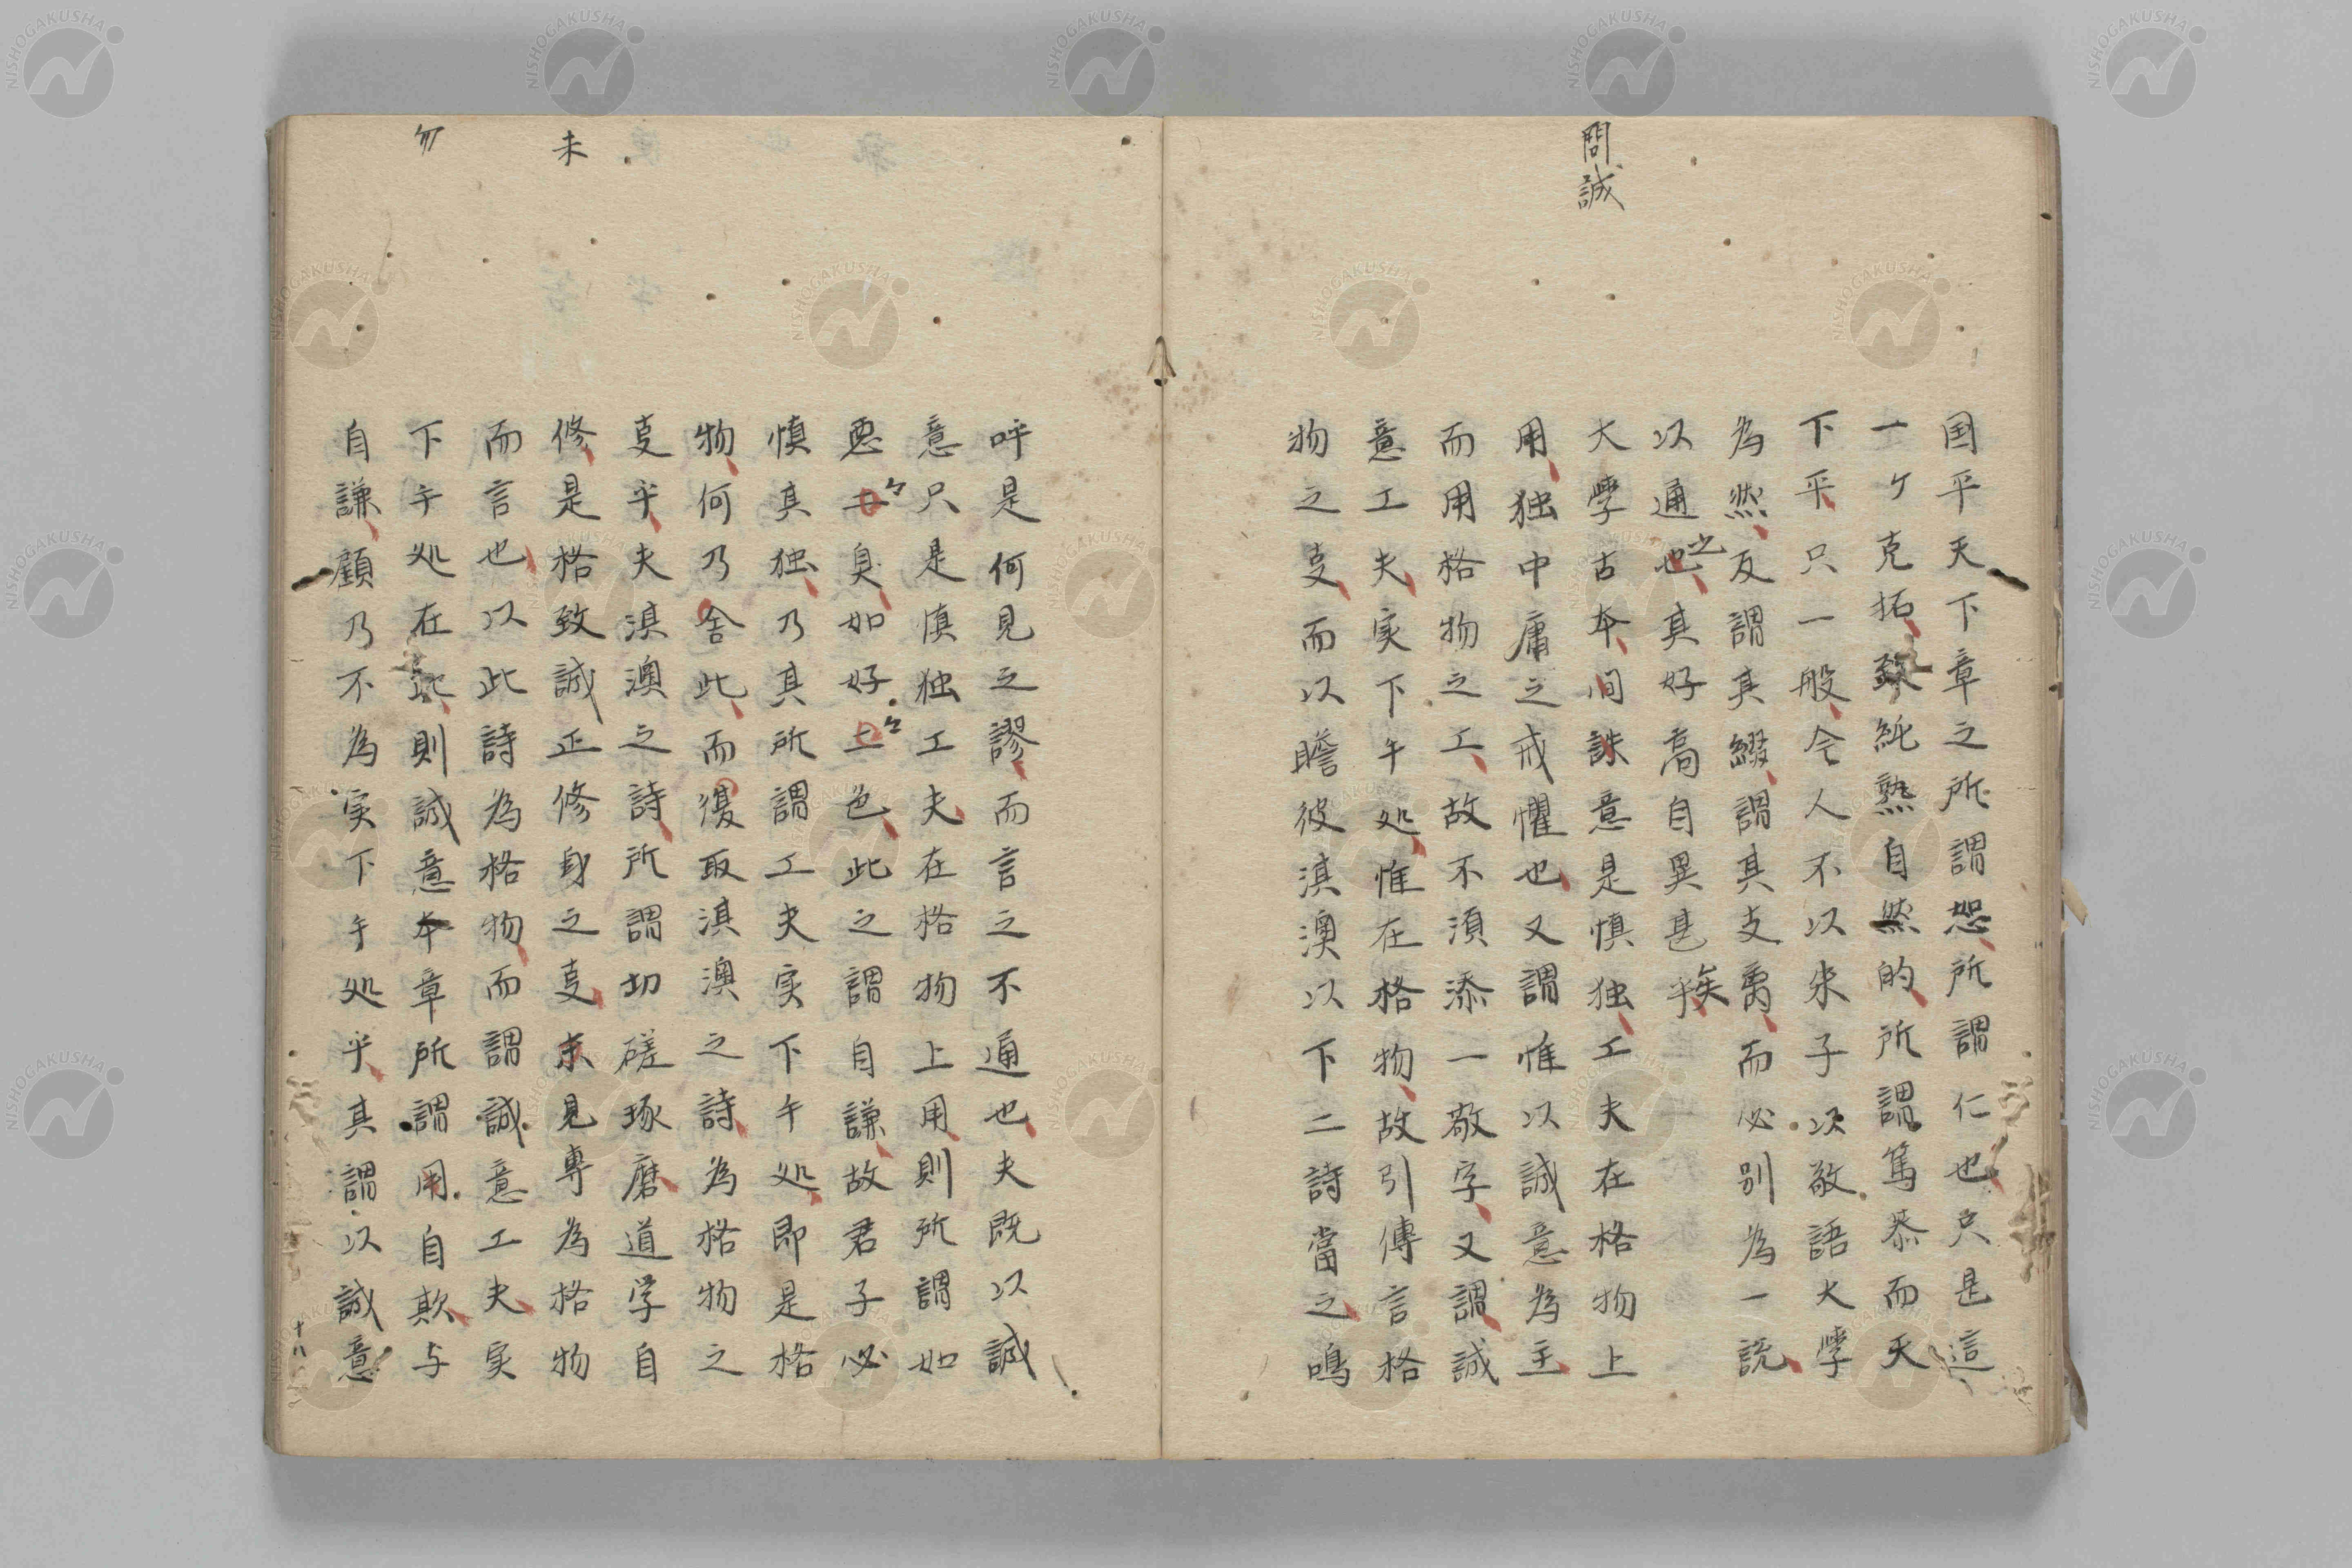 問誠
国平天下章之所謂恕所謂仁也只是這
一ケ克拓致純熟自然的所謂篤恭而天
下平只一般今人不以朱子以敬語大學
為然反謂其綴謂其支离而必別為一説
以通之也其好高自異甚矣乎
大學古本问誄意是慎独工夫在格物上
用独中庸之戒懼也又謂惟以誠意為主
而用格物之工故不須添一敬字又謂誠
意工夫实下手处惟在格物故引傳言格
物之叓而以瞻彼淇澳以下二詩當之嗚
未
勿
呼是何見之謬而言之不通也夫既以誠
意只是慎独工夫在格物上用則所謂如
悪臭如好色此之謂自謙故君子必
慎其独乃其所謂工夫实下手処即是格
物何乃舍此而復取淇澳之詩為格物之
叓乎夫淇澳之詩所謂切磋琢磨道学自
修是格致誠正修身之叓未見専為格物
而言也以此詩為格物而謂誠意工夫实
下手処在此則誠意本章所謂用自欺与
自謙顧乃不為实下手処乎其謂以誠意
十八
NISHOGAKUSHA